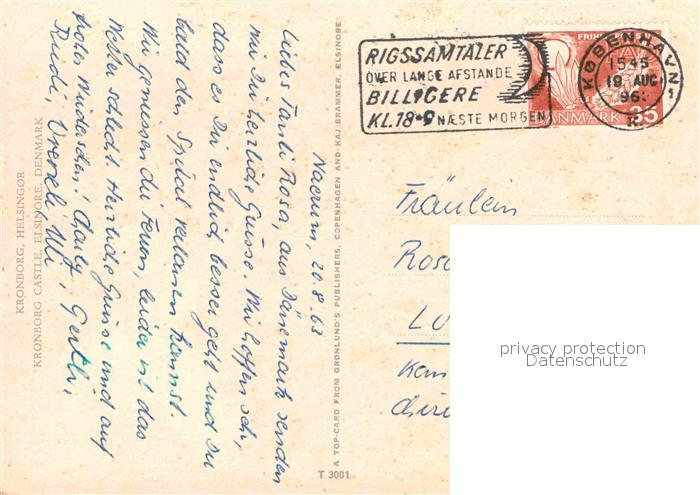 KRONBORG, HELSINGØR
KRONBORG CASTLE, ELSINORE, DENMARK
Naerum, 20.8.63
Liebes Tanti Rosa, aus Dänemark senden
wir Dir herzliche Grüsse. Wir hoffen sehr,
dass es Dir endlich besser geht und Du
bald den Spital verlassen kannst.
Wir geniessen die Ferien, leider ist das
Wetter schlecht. Herzliche Grüsse und auf
frohes Wiedersehen! Gertli,
Ruedi, Vreneli, Ueli
A TOP-CARD FROM GRØNLUND'S PUBLISHERS, COPENHAGEN AND KAJ BRAMMER, ELSINORE
T 3001
RIGSSAMTALER
OVER LANGE AFSTANDE
BILLIGERE
KL.18-9 NÆSTE MORGEN
KØBENHAVN
1545
19 AUG
96
K
FRIH
DANMARK 35
Fräulein
Rosa
LU
Kan
Chir
privacy protection
Datenschutz